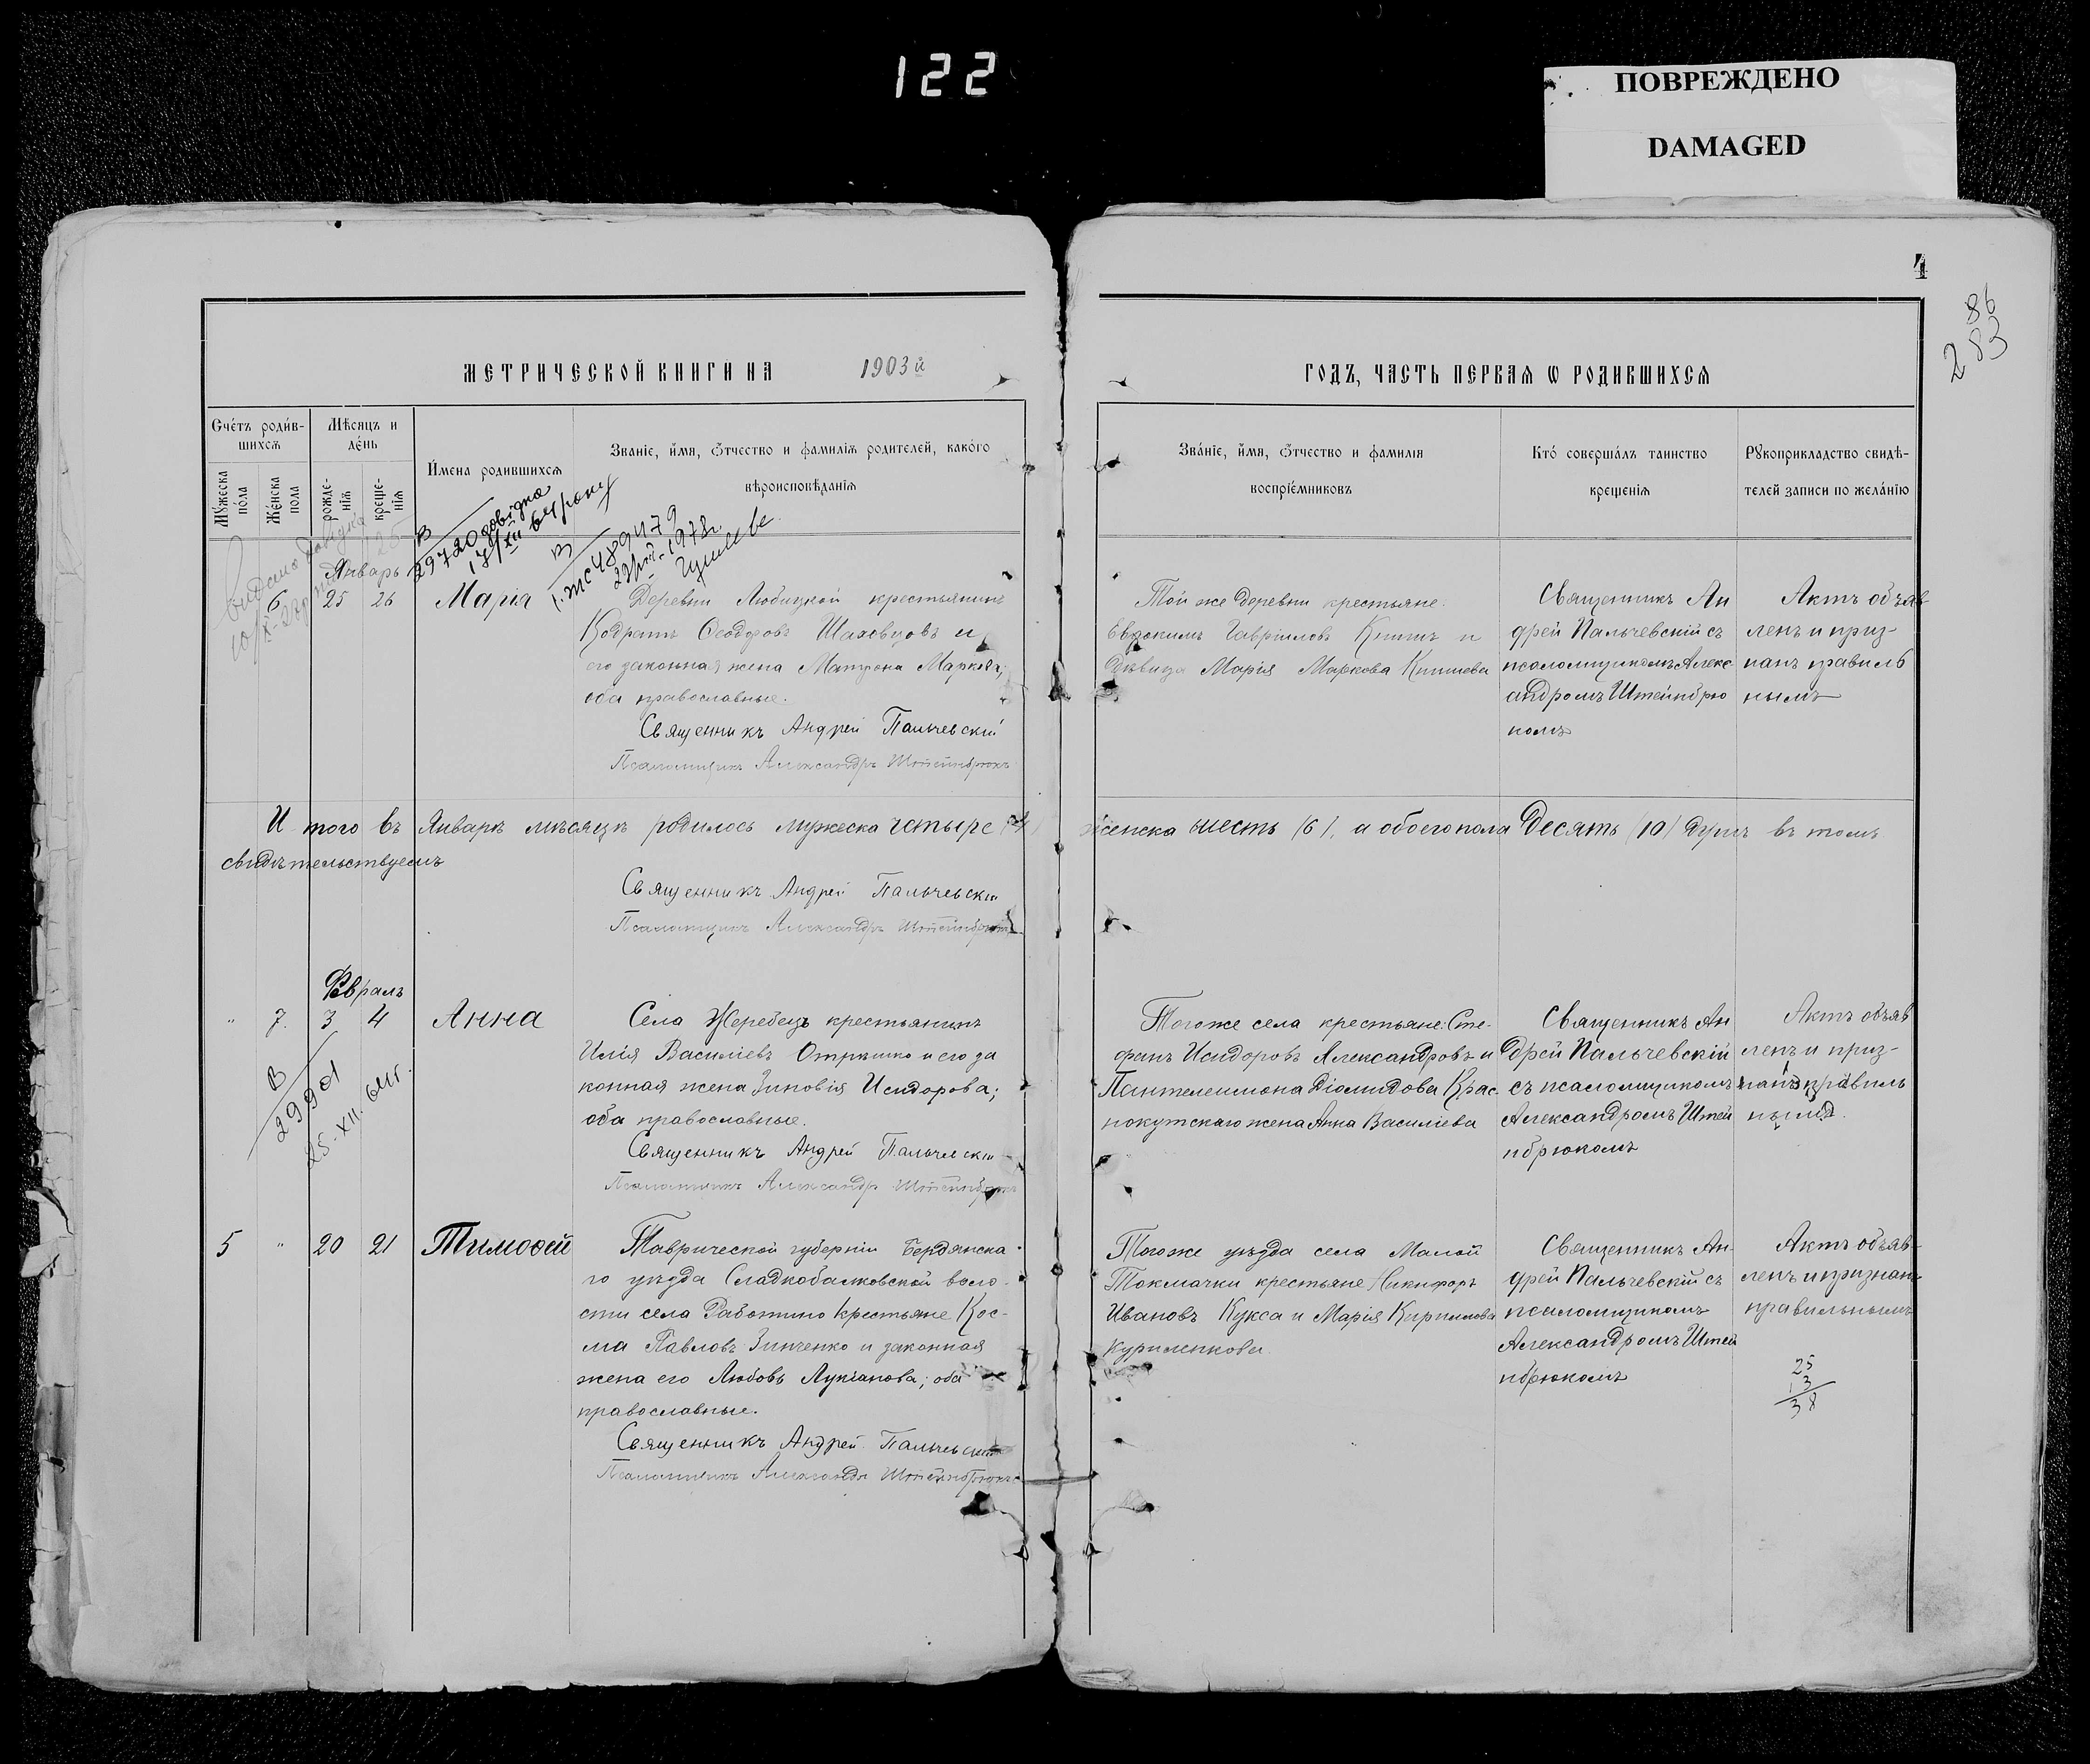 122
ПОВРЕЖДЕНО
DAMAGED
4
86
283
МЕТРИЧЕСКОЙ КНИГИ НА 1903й
ГОДЪ, ЧАСТЬ ПЕРВАЯ Ѡ РОДИВШИХСЯ
Счётъ роди́в-
шихся
Мѣсяцъ и
де́нь
Му́жеска
по́ла
Же́нска
пола
рожде-
нія
креще-
нія
И҆мена родившихся
Званіе, и҆мя, ѻтчество и фамилія родителей, како́го
вѣроисповѣданія
Зва́ніе, и҆мя, ѻтчество и фамилія
воспріе́мниковъ
Кто́ соверша́лъ таинство
крещенія
Рꙋкоприкладство свидѣ-
телей записи по жела́нію
В
29720 довідка
17/XII 64 року
В
489479
1978г.
Январь
6 25 26 Марія
Деревни Любицкой крестьянинъ
Кодратъ Ѳеодоровъ Шаховцовъ и
его законная жена Матрона Маркова,
оба православные.
Священникъ Андрей Пальчевскій
Псаломщикъ Александръ Штейнбрюкъ
Той же деревни крестьяне.
Евдокимъ Гавріиловъ Кишъ и
дѣвица Марія Маркова Кишева
Священникъ Ан
дрей Пальчевскій съ
псаломщикомъ Алекс
андромъ Штейнбрю
комъ
Актъ объяв
ленъ и приз-
нанъ правиль
нымъ
И того въ Январѣ мѣсяцѣ родилось мужеска четыре (4) женска шесть (6), а обоего пола Десять (10) душъ въ томъ
свидѣтельствуемъ
Священникъ Андрей Пальчевскій
Псаломщикъ Александръ Штейнбрюкъ
Февраль
" 7. 3 4 Анна
В
29901
25.XII. 64г.
Села Жеребецъ крестьянинъ
Илія Василіевъ Отришко и его за
конная жена Зиновія Исидорова;
оба православные.
Священникъ Андрей Пальчевскій
Псаломщикъ Александръ Штейнбрюкъ
Тогоже села крестьяне: Сте-
фанъ Исидоровъ Александровъ и
Пантелеимона Діомидова Крас-
нокутскаго жена Анна Василіева
Священникъ Ан
дрей Пальчевскій
съ псаломщикомъ
Александромъ Штей
нбрюкомъ
Актъ объяв
ленъ и приз-
нанъ правиль
нымъ.
5 " 20 21 Тимоѳей
Таврической губерніи Бердянска-
го уѣзда Сладкобалковской воло-
сти села Работино крестьяне Кос-
ма Павловъ Зинченко и законная
жена его Любовь Лукіанова; оба
православные.
Священникъ Андрей Пальчевскій
Псаломщикъ Александръ Штейнбрюкъ
Тогоже уѣзда села Малой
Токмачки крестьяне Никифоръ
Ивановъ Кукса и Марія Кириллова
Куриленкова
Священникъ Ан-
дрей Пальчевскій съ
псаломщикомъ
Александромъ Штей
нбрюкомъ
Актъ объяв-
ленъ и признанъ
правильнымъ
25
13
38